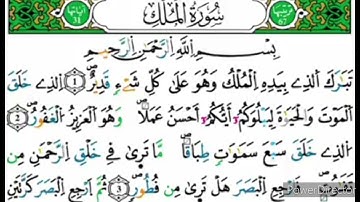 ترتيبها 67 سُورَةُ الْمُلْكِ آياتها 31
بِسْمِ اللَّهِ الرَّحْمَٰنِ الرَّحِيمِ
تَبَارَكَ الَّذِي بِيَدِهِ الْمُلْكُ وَهُوَ عَلَىٰ كُلِّ شَيْءٍ قَدِيرٌ ۝1 الَّذِي خَلَقَ
الْمَوْتَ وَالْحَيَاةَ لِيَبْلُوَكُمْ أَيُّكُمْ أَحْسَنُ عَمَلًا ۚ وَهُوَ الْعَزِيزُ الْغَفُورُ ۝2
الَّذِي خَلَقَ سَبْعَ سَمَاوَاتٍ طِبَاقًا ۖ مَّا تَرَىٰ فِي خَلْقِ الرَّحْمَٰنِ مِن
فَارْجِعِ الْبَصَرَ هَلْ تَرَىٰ مِن فُطُورٍ ۝3 ثُمَّ ارْجِعِ الْبَصَرَ كَرَّتَيْنِ